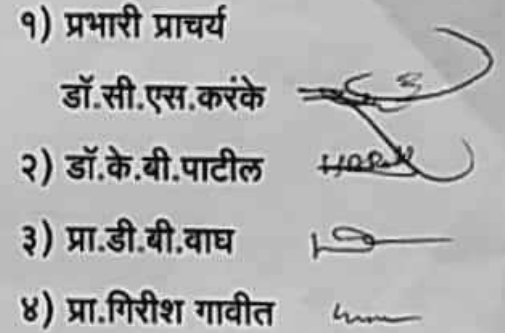 १) प्रभारी प्राचर्य
डॉ.सी.एस.करंके
२) डॉ.के.बी.पाटील
३) प्रा.डी.बी.वाघ
४) प्रा.गिरीश गावीत